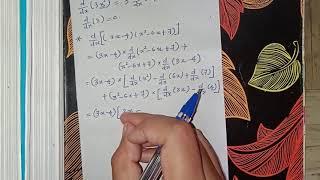 d/dx (3x²) =
d/dx (3) = 0
* d/dx [(3x-4)(x²-6x+7)]
= (3x-4) × d/dx (x²-6x+7) +
(x²-6x+7) × d/dx (3x-4)
= (3x-4) × [d/dx (x²) - d/dx (6x) + d/dx (7)]
+ (x²-6x+7) × [d/dx (3x) - d/dx (4)]
= (3x-4) [2x -